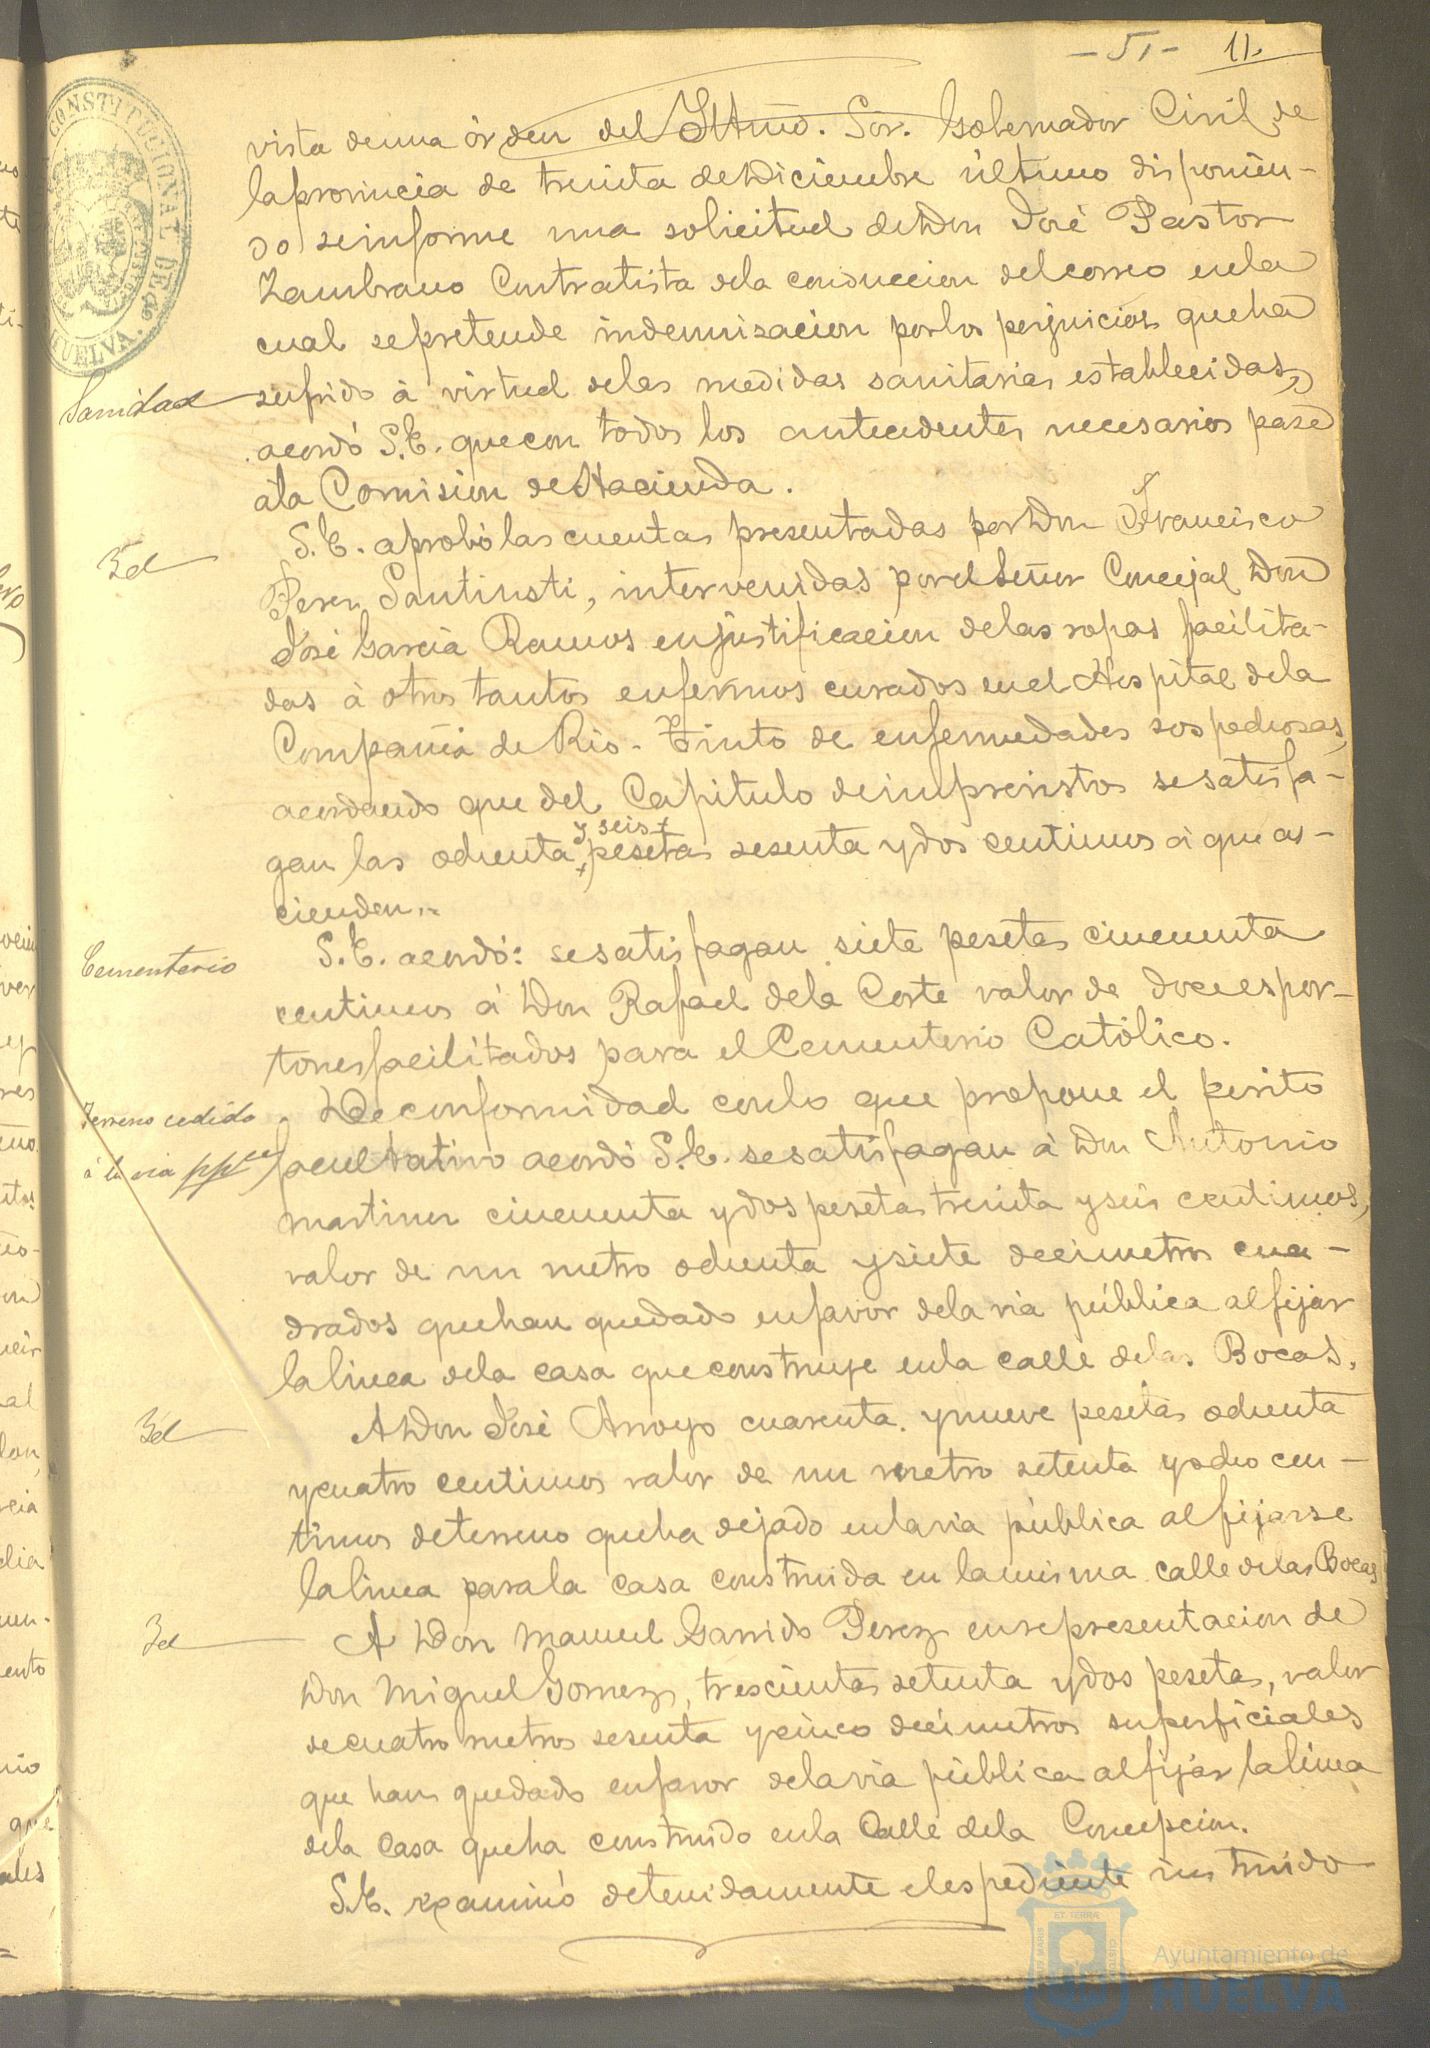 - 5 - 11.
CONSTITUCIONAL DE
HUELVA.
vista de una órden del Iltmo. Sor. Gobernador Civil de
la provincia de treinta de Diciembre último disponien-
do se informe una solicitud de Don José Pastor
Zambrano Contratista de la conduccion del correo en la
cual se pretende indemnisacion por los perjuicios que ha
Sanidad
sufrido á virtud de las medidas sanitarias establecidas,
acordó S.E. que con todos los antecedentes necesarios pase
á la Comision de Hacienda.
Id
S.E. aprobó las cuentas presentadas por Don Francisco
Perez Santiusti, intervenidas por el Señor Concejal Don
José García Ramos en justificacion de las ropas facilita-
das á otros tantos enfermos curados en el Hospital de la
Compañía de Rio-Tinto de enfermedades sospechosas,
acordando que del Capitulo de imprevistos se satisfa-
y seis
gan las ochenta pesetas sesenta y dos centimos á que as-
cienden.
Cementerio
S.E. acordó: se satisfagan siete pesetas cincuenta
centimos á Don Rafael de la Corte valor de doce espor-
tones facilitados para el Cementerio Católico.
Terreno cedido
á la via ppca
De conformidad con lo que propone el perito
facultativo acordó S.E. se satisfagan á Don Antonio
Martinez cincuenta y dos pesetas treinta y seis centimos,
valor de un metro ochenta y siete decimetros cua-
drados que han quedado en favor de la via pública al fijar
la linea de la casa que construye en la calle de las Bocas.
Id
A Don José Arroyo cuarenta y nueve pesetas ochenta
y cuatro centimos valor de un metro setenta y ocho cen-
timos de terreno que ha dejado en la via pública al fijarse
la linea para la casa construida en la misma calle de las Bocas
Id
A Don Manuel Garrido Perez en representacion de
Don Miguel Gomez, trescientas setenta y dos pesetas, valor
de cuatro metros sesenta y cinco decimetros superficiales
que han quedado en favor de la via pública al fijar la linea
de la casa que ha construido en la Calle de la Concepcion.
S.E. examinó detenidamente el espediente instruido
Ayuntamiento de
HUELVA